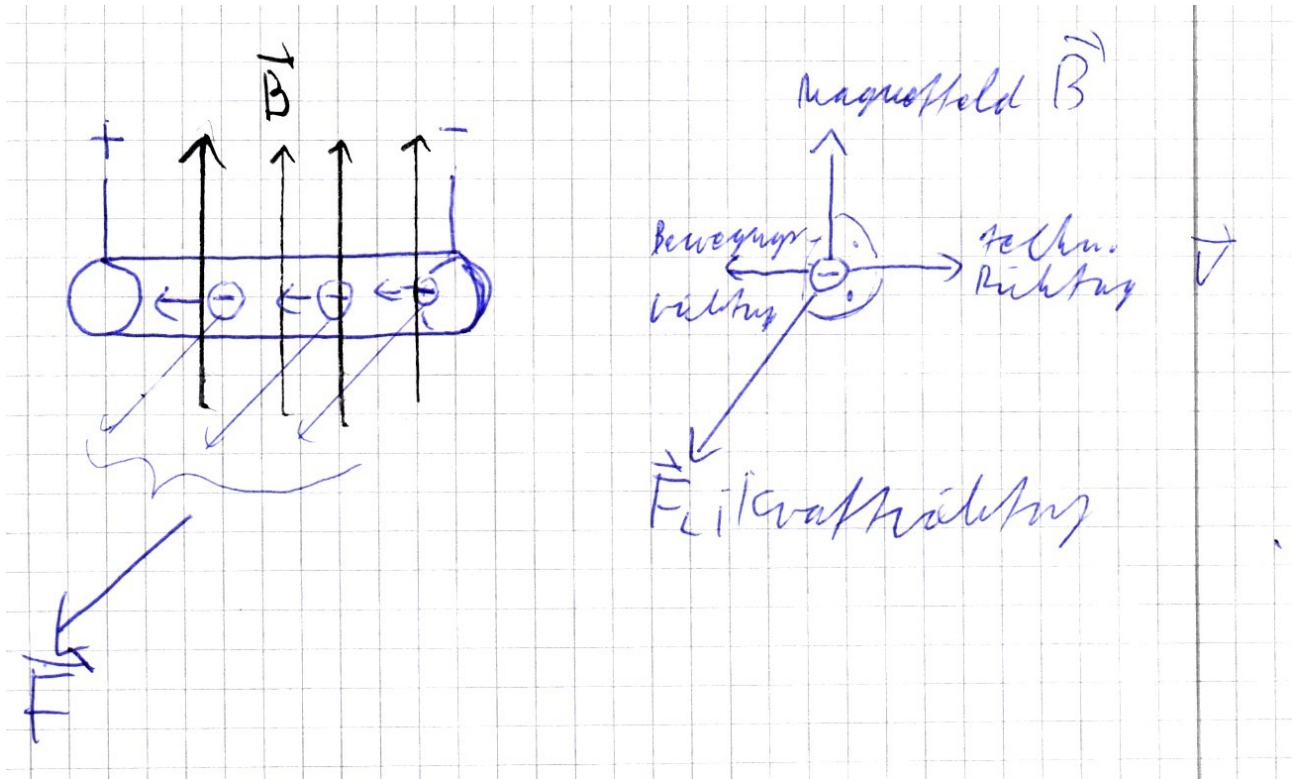 B
+ -
- - -
F
Magnetfeld B
Bewegungs-
richtung
-
techn.
Richtung
V
F_L; Kraftrichtung